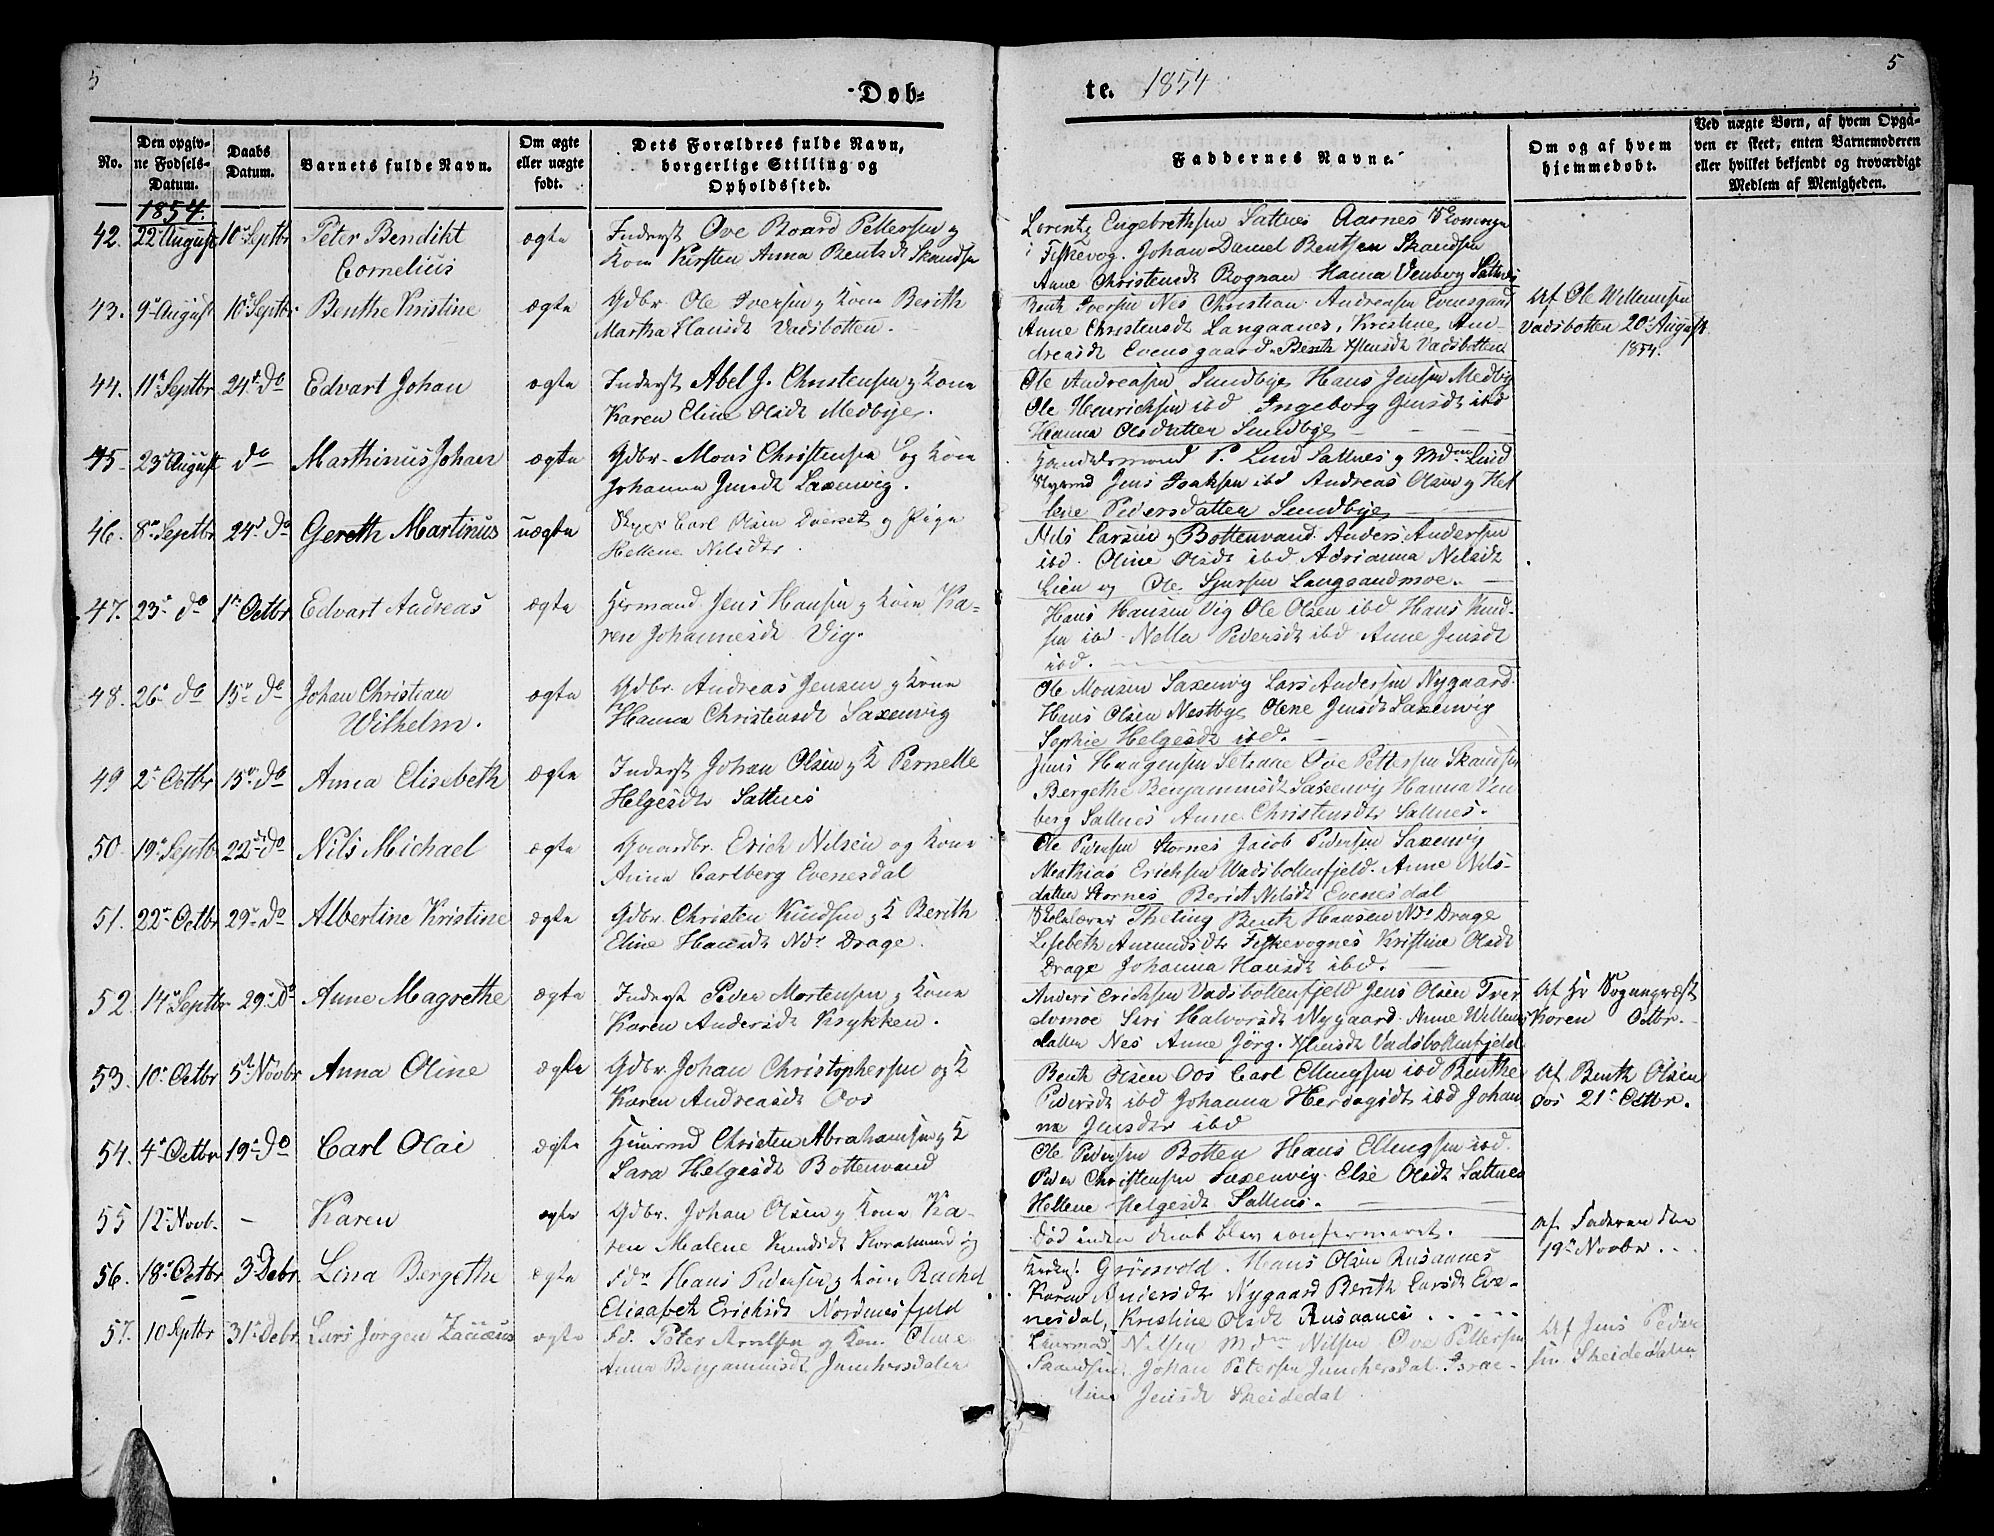 5
Døb-
te. 1854
5
No.
Den opgiv-
ne Fødsels-
Datum.
Daabs
Datum.
Barnets fulde Navn.
Om ægte
eller uægte
født.
Dets Forældres fulde Navn,
borgerlige Stilling og
Opholdssted.
Faddernes Navne.
Om og af hvem
hjemmedøbt.
Ved uægte Børn, af hvem Opgi-
ven er skeet, enten Barnemoderen
eller hvilket bekjendt og troværdigt
Medlem af Menigheden.
1854.
42. 22 August 10 Septbr Peter Bendikt ægte Inderst Ove Board Pettersen og
Cornelius Kone Kirsten Anna Bentsdt Skandsen
Lorentz Engebrethsen Saltnes Aarnes
i Fiskevog. Johan Daniel Bentsen Skandsen
Anne Christensdt Rognan Hanna Venberg Saltnes
43. 9 August 10 Septbr. Benthe Kristine ægte Gdbr. Ole Iversen og Kone Berith
Martha Hansdt Vadsbotten.
Bent Iversen Nes Christian Andreasen Evensgaard
Anne Christensdt Langaanes, Kristine An-
dreasdt Evensgaard. Bent Jensdt Vadsbotten
Af Ole Willumsen
Vadsbotten 20 August
1854.
44. 11 Septbr 24 do Edvart Johan ægte Inderst Abel J. Christensen og Kone
Karen Eline Olsdt Medbye.
Ole Andreasen Sundbye Hans Jensen Medby
Ole Henrichsen ibd Ingeborg Jensdt ibd
Hanna Olsdatter Sundbye
45. 23 August do Marthinus Johan ægte Gdbr. Mons Christensen og Kone
Johanna Jensdt Saxenvig.
Handelsmand P. Lind Saltnes og Mdm Lind
Jens Isaksen ibd Andreas Olsen og Hel
lene Pedersdatter Sundbye
46. 8 Septbr 24 do Gereth Martinus uægte Carl Olsen Dverset og Pige
Hellene Nilsdtr.
Nils Larsen Bottenvand. Anders Andersen
ibd. Oline Olsdt ibd Adrianna Nilsdt
Lien og Ole Sjursen Langsandmoe.
47. 23 do 1 Octbr Edvart Andreas ægte Huusmand Jens Hansen og Kone Ka-
ren Johannesdt Vig.
Hans Hansen Vig Ole Olsen ibd Hans Knud-
sen ibd. Nella Pedersdt ibd Anne Jensdt
ibd.
48. 26 do 15 do Johan Christian ægte Gdbr. Andreas Jensen og Kone
Wilhelm. Hanna Christensdt Saxenvig
Ole Monsen Saxenvig Lars Andersen Nygaard.
Hans Olsen Nestbye Olene Jensdt Saxenvig
Sophie Helgesdt ibd.
49 2 Octbr 15 do Anna Elisebeth ægte Inderst Johan Olsen og K Pernelle
Helgesdt Saltnes
Jens Haagensen Setsaae Ove Pettersen Skandsen
Bergethe Benjaminsdt Saxenvig Hanna Ven
berg Saltnes Anne Christensdtr Saltnes.
50. 19 Septbr 22 do Nils Michael ægte Gaardbr. Erich Nilsen og Kone
Anna Carlberg Evenesdal
Ole Pedersen Stornes Jacob Pedersen Saxenvig
Mathias Erichsen Vadsbottenfjeld. Anne Nils-
datter Stornes Berit Nilsdt Evenesdal
51. 22 Octbr 29 do Albertine Kristine ægte Gdbr. Christen Knudsen og K Berith
Eline Hansdt Ndr Drage.
Skolelærer Theting Bent Hansen Ndr Drage
Lisebeth Amundsdtr Fiskevognes Kristine Olsdt
Drage Johanna Hansdt ibd.
52. 14 Septbr 29 do Anne Magrethe ægte Inderst Peder Mortensen og Kone
Karen Andersdt Krykken.
Anders Erichsen Vadsbottenfjeld Jens Olsen Tver
Siri Halvorsdt Nygaard. Anne Willums
datter Nes Anne Jørg. Jensdt Vadsbottenfjeld
Af Hr Sognepræst
Koren Octbr.
53. 10 Octbr 5 Novbr Anna Oline ægte Gdbr. Johan Christophersen og K
Karen Andreasdt Oos
Bent Olsen Oos Carl Ellingsen ibd Benthe
Pedersdt ibd Johanna Herdagsdt ibd Johan
na Jensdtr ibd
Af Benth Olsen
Oos 21 Octbr.
54. 4 Octbr 19 do Carl Olai ægte Huusmd Christen Abrahamsen og K
Sara Helgesdt Bottenvand
Ole Pedersen Botten Hans Ellingsen ibd
Peder Christensen Saxenvig. Else Olsdt Saltnes
Hellene Helgesdt Saltnes.
55 12 Novb. - Karen ægte Gdbr. Johan Olsen og Kone Ka-
ren Malene Knudsdt Storesund
Død inden daab blev confirmeret.
Af Faderen den
19 Novbr.
56. 18 Octbr 3 Debr. Lina Bergethe ægte Fdr Hans Pedersen og Kone Rachel
Elisabeth Erichsdt Nordnesfjeld
Grönvold. Hans Olsen Rusaanes
Karen Andersdtr Nygaard Berith Larsdt Eve-
nesdal, Kristine Olsdt Rusaanes
57. 10 Septbr 31 Debr. Lars Jørgen Zacæus ægte Fd. Peter Arntsen og Kone Oline
Anna Benjaminsdt Junchersdalen
Nilsen Mdm Nilsen Ove Pettersen
Skandsen. Johan Petersen Junchersdal. Israe-
lina Jensdt Skeidedal.
Af Jens Peder
sen Skeidedalen